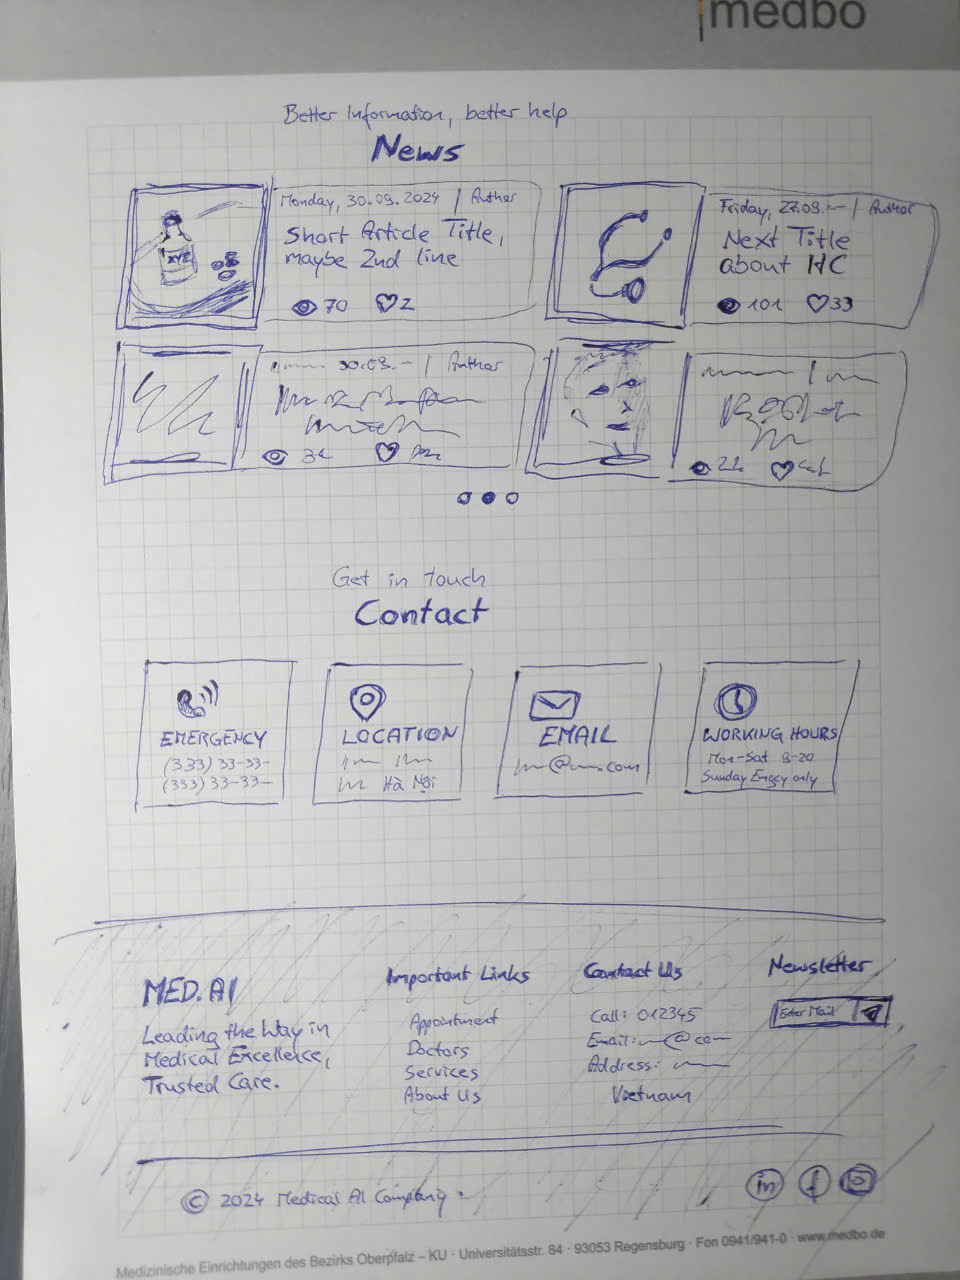 medbo
Better Information, better help
News
Monday, 30.09.2024 | Author
Short Article Title,
maybe 2nd line
70 2
XYZ
Friday, | Author
Next Title
about HC
101 33
30.09. | Author
Get in touch
Contact
EMERGENCY
(333) 33-33-
(333) 33-33-
LOCATION
Hà Nội
EMAIL
@ .com
WORKING HOURS
Mon-Sat 8-20
Sunday only
MED.AI
Leading the Way in
Medical Excellence,
Trusted Care.
Important Links
Appointment
Doctors
Services
About Us
Contact Us
Call: 012345
Email: @
Address:
Vietnam
Newsletter
Enter Mail
© 2024 Medical AI Company
in f
Medizinische Einrichtungen des Bezirks Oberpfalz – KU · Universitätsstr. 84 · 93053 Regensburg · Fon 0941/941-0 · www.medbo.de